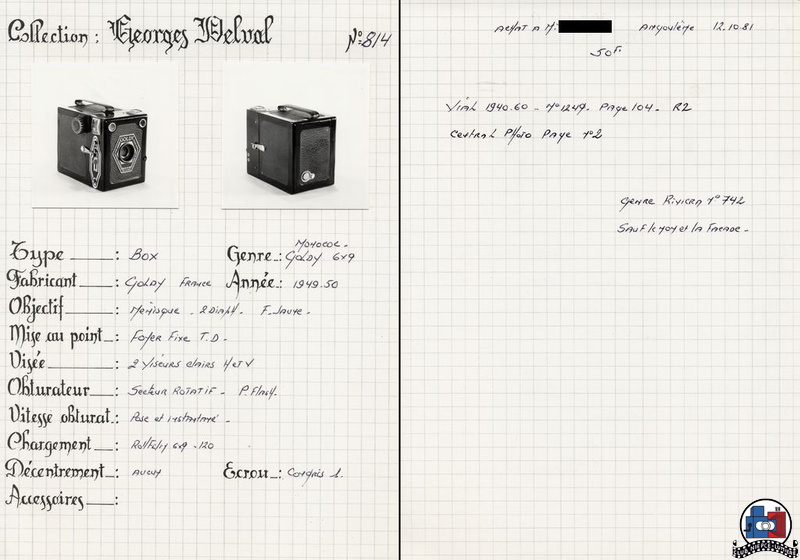 Collection : Georges Delval N°: 814
Type : Box
Genre : Monocol. Goldy 6x9
Fabricant : Goldy France
Année : 1949.50
Objectif : Ménisque - 2 Diaph. F. Jaune.
Mise au point : Foyer Fixe T.D.
Visée : 2 Viseurs clairs H et V
Obturateur : Secteur Rotatif - P. Flash.
Vitesse obturat. : Pose et instantané -
Chargement : Rollfilm 6x9 - 120
Décentrement : Aucun
Ecrou : Congrès 1.
Accessoires :
Achat a Mr Angoulême 12.10.81
50F.
Vial 1940.60 - N°1249. Page 104. R2
Central Photo Page N°2
Genre Riviera N°742
Sauf le et la Facade -